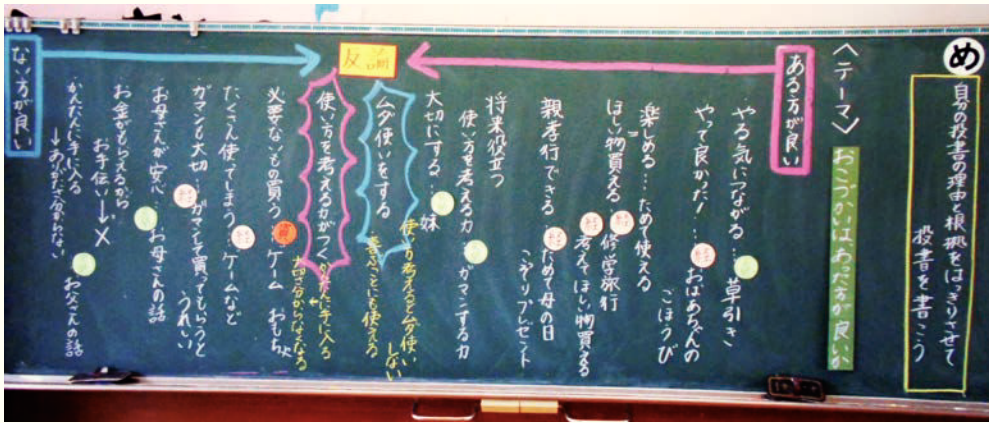 め
自分の投書の理由と根拠をはっきりさせて
投書を書こう
〈テーマ〉
おこづかいは、あった方が良いか
ある方が良い
やる気につながる…草引き
やって良かった!…おばあちゃんの
ごほうび
楽しめる…ためて使える
ほしい物買える…修学旅行
考えてほしい物買える
親孝行できる ためて母の日
こっそりプレゼント
将来役立つ
使い方を考える力 ガマンする力
大切にする…妹
反論
ムダ使いをする
使い方考えるとムダ使い
しない
使い方を考える力がつく
かんたんに手に入る
大切さ分からなくなる
必要ないもの買う…ゲーム おもちゃ
たくさん使ってしまう…ゲームなど
ガマンも大切…ガマンして買ってもらうと
うれしい
お母さんが安心…お母さんの話
お金がもらえるから
お手伝い→×
かんたんに手に入る お父さんの話
→ありがた分からない
ない方が良い